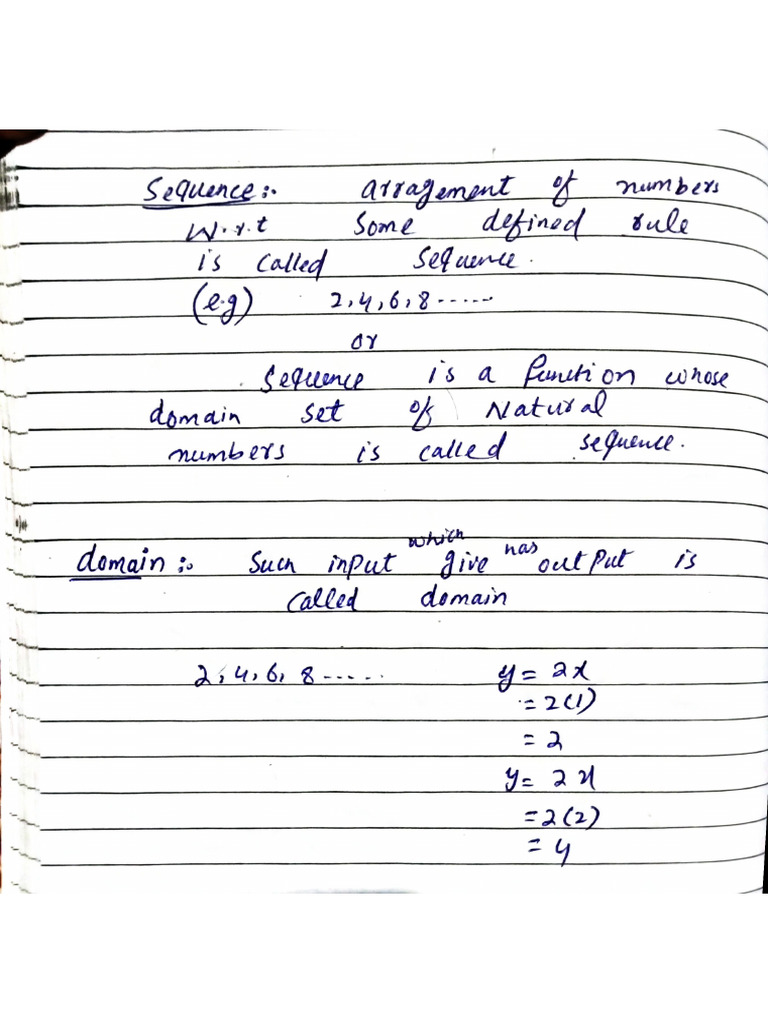 Sequence:- arragement of numbers
W.r.t some defined rule
is called sequence.
(e.g) 2,4,6,8......
or
Sequence is a function whose
domain set of Natural
numbers is called sequence.
domain:- Such input which give has output is
called domain
2,4,6,8...... y= 2x
= 2(1)
= 2
y= 2x
=2(2)
= 4